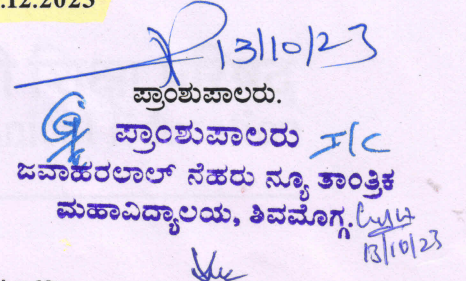 .12.2023
13/10/23
ಪ್ರಾಂಶುಪಾಲರು.
ಪ್ರಾಂಶುಪಾಲರು I/C
ಜವಾಹರಲಾಲ್ ನೆಹರು ನ್ಯೂ ತಾಂತ್ರಿಕ
ಮಹಾವಿದ್ಯಾಲಯ, ಶಿವಮೊಗ್ಗ.
13/10/23